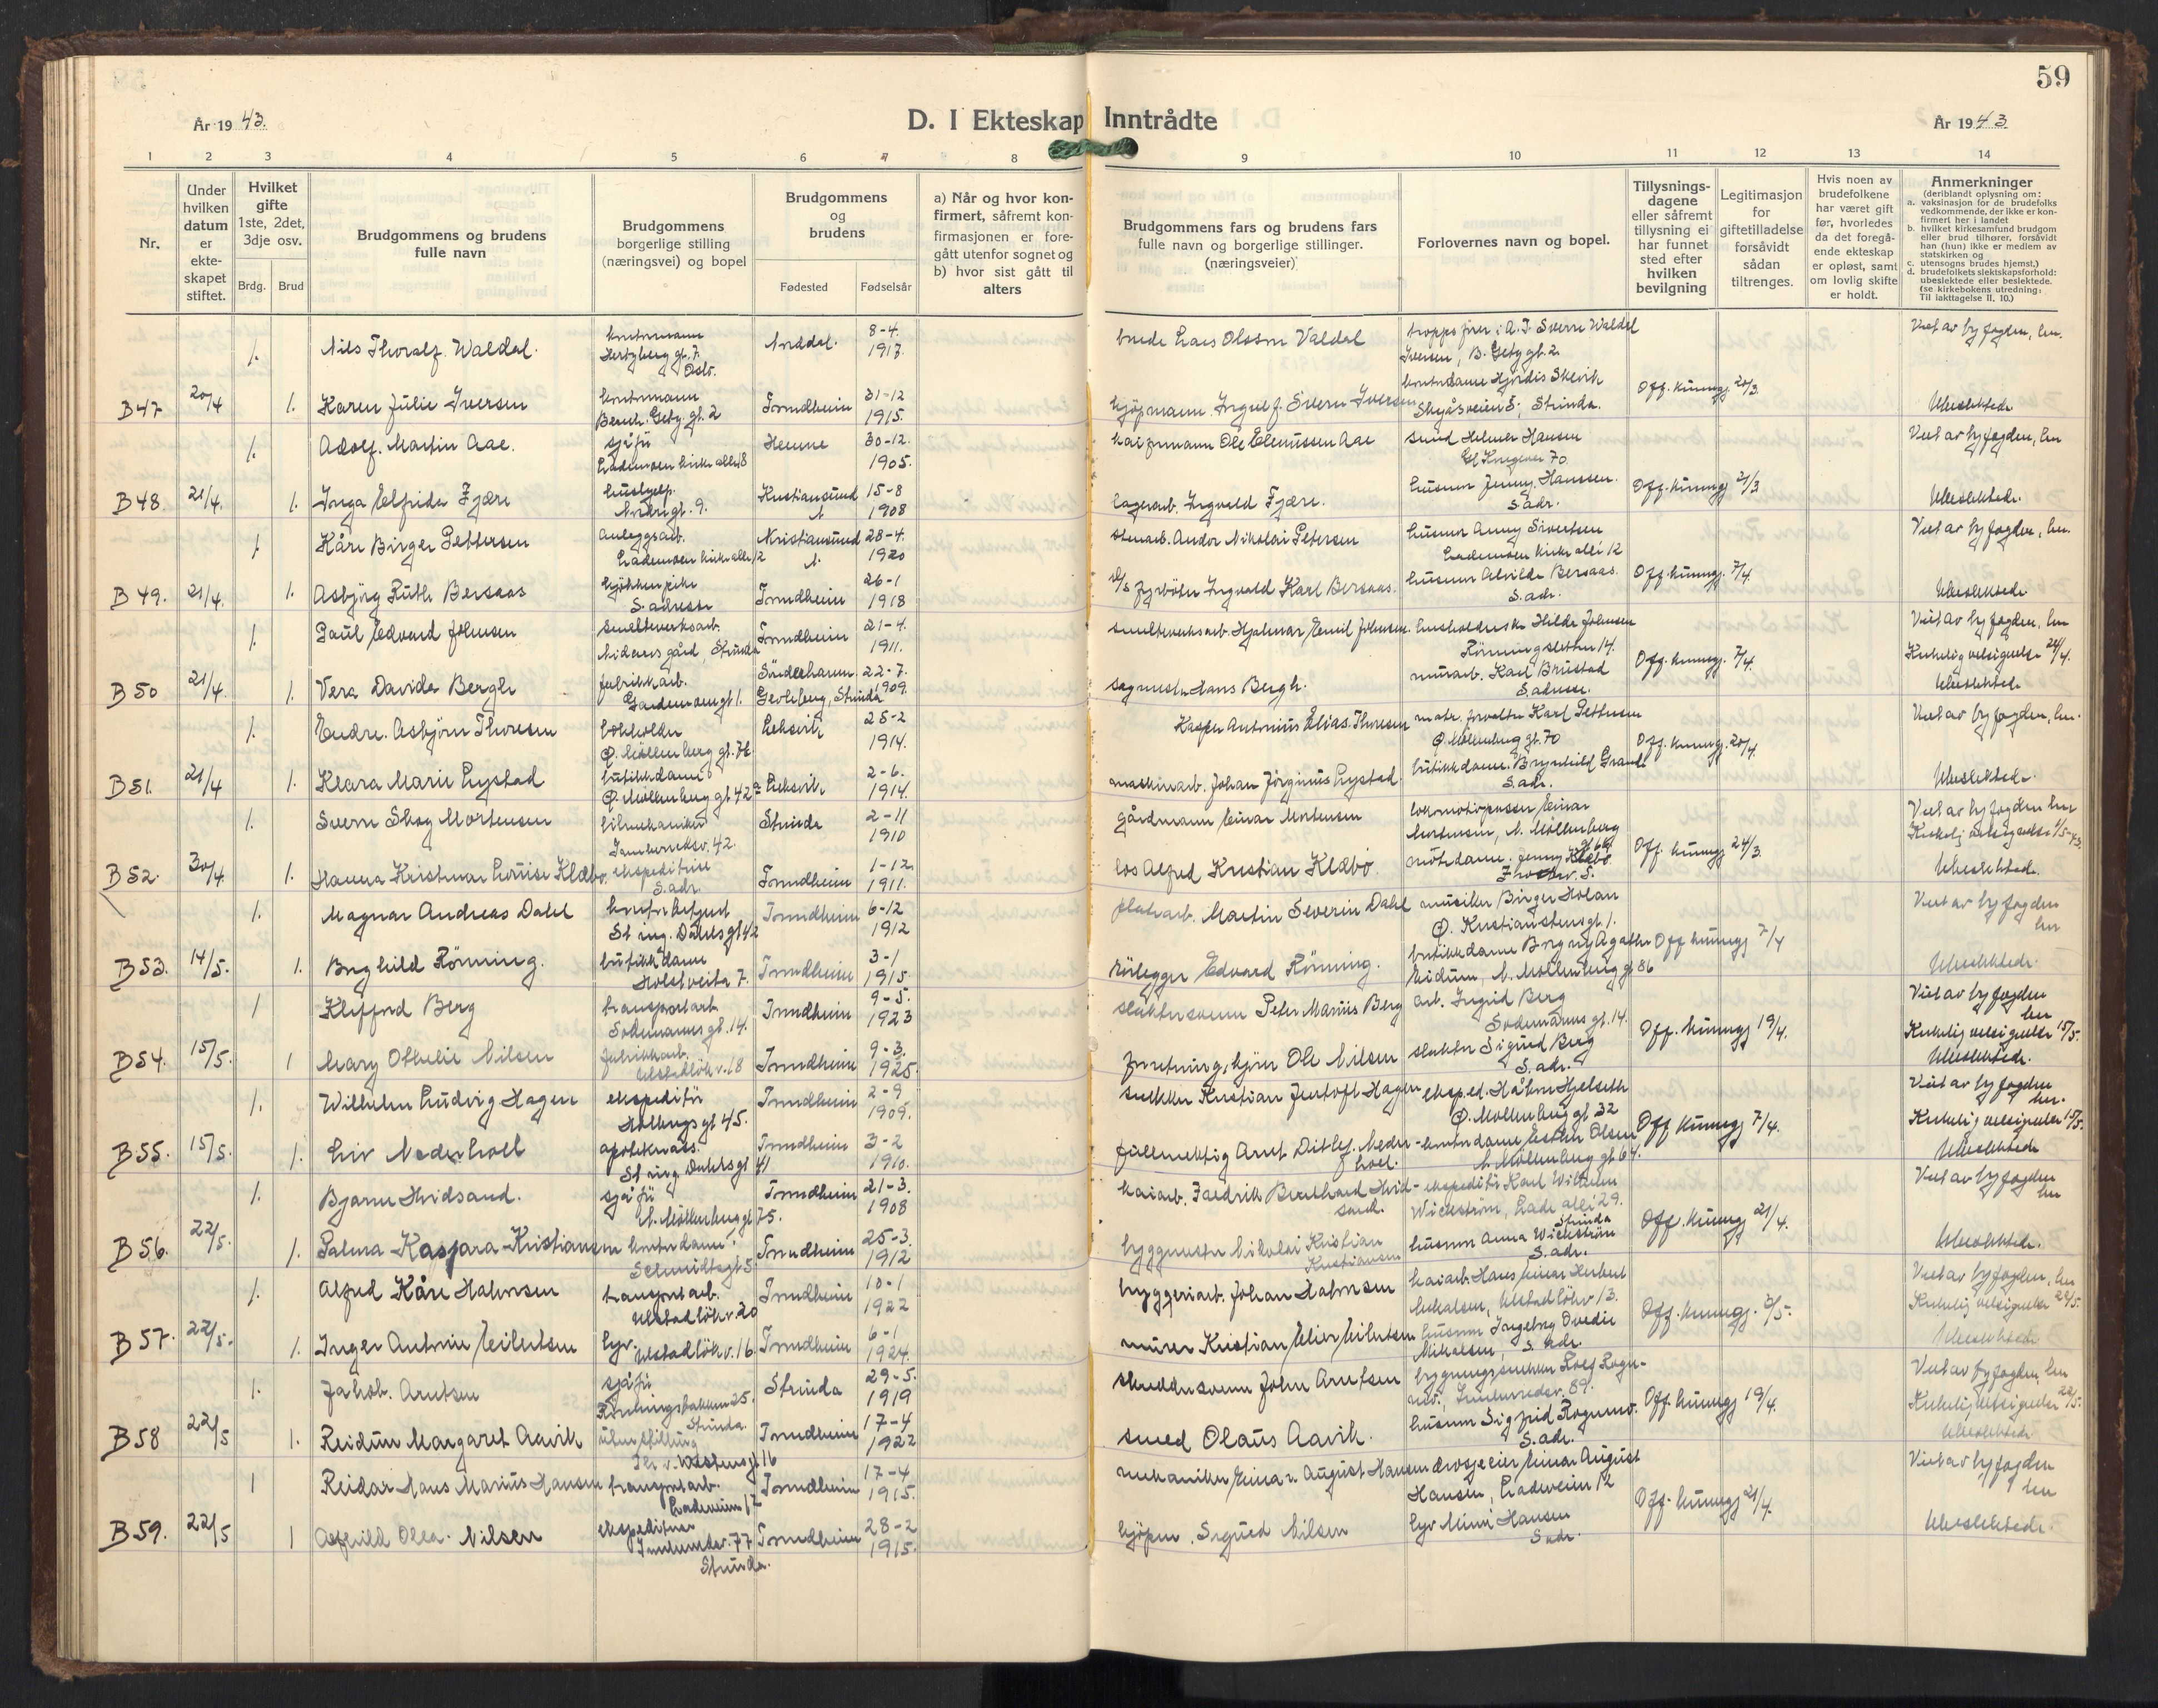 59
År 1943.
D. I Ekteskap Inntrådte
År 1943
1 2 3 4 5 6 7 8 9 10 11 12 13 14
Nr.
Under hvilken datum er ekteskapet stiftet.
Hvilket gifte 1ste, 2det, 3dje osv.
Brdg. Brud
Brudgommens og brudens fulle navn
Brudgommens borgerlige stilling (næringsvei) og bopel
Brudgommens og brudens
Fødested Fødselsår
a) Når og hvor konfirmert, såfremt konfirmasjonen er foregått utenfor sognet og b) hvor sist gått til alters
Brudgommens fars og brudens fars fulle navn og borgerlige stillinger. (næringsveier)
Forlovernes navn og bopel.
Tillysningsdagene eller såfremt tillysning ei har funnet sted efter hvilken bevilgning
Legitimasjon for giftetilladelse forsåvidt sådan tiltrenges.
Hvis noen av brudefolkene har været gift før, hvorledes da det foregående ekteskap er opløst, samt om lovlig skifte er holdt.
Anmerkninger
(deriblandt oplysning om:
a. vaksinasjon for de brudefolks vedkommende, der ikke er konfirmert her i landet
b. hvilket kirkesamfund brudgom eller brud tilhører, forsåvidt han (hun) ikke er medlem av statskirken og
c. utensogns brudes hjemst.)
d. brudefolkets slektskapsforhold: ubeslektede eller beslektede.
(se kirkebokens utredning: Til iakttagelse II, 10.)
1. Nils Thoralf Waldal. kontormann Hertzberg gt. 7. Oslo. 8-4. 1917. Lars Olsson Valdal
Viet av byfogden, her.
B47 20/4 1. Karen Julie Iversen kontormann 2 Trondheim 31-12 1915. kjøpmann Ingolf Sverre Iversen kontordame Hjørdis Skevik Strinda. Off. kunngj. 20/3. Ubeslektede
1. Adolf Martin Aae. sjåfør Lademoen kirkeallé 18 Hemne 30-12. 1905. Ole Elenussen Aae smed Helmer Hansen 70. Viet av byfogden, her
B48. 21/4. 1. Inga Elfrida Fjære hushjelp. gt. 9. Kristiansund N 15-8 1908 lagerarb. Ingvald Fjære. husmor Jenny Hanssen. S. adr. Off. kunngj 21/3 Ubeslektede.
1 Kåre Birger Pettersen anleggsarb. Lademoen kirkeallé 12 Kristiansund N. 28-4. 1920 stenarb. Andor Nikolai Petersen husmor Anny Sivertsen Lademoen kirkeallé 12 Viet av byfogden, her.
B49. 21/4. 1. Asbjørg Ruth Bersaas kjøkkenpike S. adresse Trondheim 26-1 1918 fyrbøter Ingvald Karl Bersaas. husmor Alvilde Bersaas. S. adr. Off. kunngj. 7/4. Ubeslektede
1. Paul Edvard Johnsen smelteverksarb. Nidarvs gård, Strinda Trondheim 21-4. 1911. smelteverksarb. Hjalmar Emil Johnsen. Hilda Johnsen Rönningsletten 14. Viet av byfogden, her
B50 21/4. 1. Vera Davida Bergh fabrikkarb. Gardemoengt 1. 22-7. 1909. Hans Bergh. murarb. Karl Brustad S. adresse. Off. kunngj. 7/4. Kirkelig velsignelse 24/4. Ubeslektede
1. Endre Asbjørn Thoresen bokholder Ø. Møllenberg gt. 76 Leksvik 25-2 1914. Kasper Antonius Elias Thoresen mater. forvalter Karl Pettersen Ø. Møllenberg gt. 70 Viet av byfogden, her.
B51. 21/4 1. Klara Marie Lystad butikkdame Ø. Møllenberg gt 42a Leksvik 2-6. 1914. maskinarb. Johan Jørginius Lystad. butikkdame. Brynhild Grande S. adr. Off. kunngj. 20/4. Ubeslektede.
1. Sverre Skog Mortensen bilmekaniker Innherredsv. 42. Strinda 2-11 1910 gårdmann Einar Mortensen lokomotivpusser Einar Mortensen, N. Møllenberg gt. 64. Viet av byfogden her
B52. 30/4 1. Hanna Kristmar Louise Klæbo. ekspeditrise S. adr. Trondheim 1-12. 1911. los Alfred Kristian Klæbo. Jenny Klæbo Off. kunngj 24/3. Kirkelig velsignelse 1/5-43. Ubeslektede.
1. Magnar Andreas Dahl kontorbetjent St. ing. Dahls gt 42 Trondheim 6-12 1912 Martin Severin Dahl musiker Birger Holan Ø. Kristianstensgt 1. Viet av byfogden her
B53. 14/5. 1. Borghild Rønning. butikkdame Holstveita 7. Trondheim 3-1 1915. rørlegger Edvard Rønning. butikkdame Borgny Agathe Eidum, N. Møllenberg gt 86 Off. kunngj 7/4 Ubeslektede.
1 Klifford Berg transportarb. Sodemanns gt. 14. Trondheim 9-5. 1923 slaktersvenn Peter Marius Berg arb. Ingrid Berg Sodemanns gt. 14. Viet av byfogden her
B54. 15/5. 1 Mary Othelie Nilsen fabrikkarb. Ulstadløkv. 18 Trondheim 9-3. 1925. Ole Nilsen slakter Sigurd Berg S. adr. Off. kunngj 19/4. Kirkelig velsignelse 15/5. Ubeslektede.
1. Wilhelm Ludvig Hagen ekspeditør Holbergs gt 45. Trondheim 2-9 1909. snekker Kristian Jentoft Hagen eksped. Håkon Hjelseth Ø. Møllenberg gt 32 Viet av byfogden her.
B55. 15/5. 1. Liv Nederhoel apotekerass. St ing Dahls gt 41 Trondheim 3-2 1910. fullmektig Arnt Ditlef Nederhoel. kontordame Esther Olsen N. Møllenberg gt 64. Off kunngj 7/4. Kirkelig velsignelse 15/5. Ubeslektede
1. Bjarne Hvidsand. sjåfør N. Møllenberg gt 75. Trondheim 21-3. 1908 kaiarb. Fredrik Bernhard Hvidsand. ekspeditør Karl Wilhelm Wickstrøm, Lade allé 29. Strinda Viet av byfogden her
B56. 22/5. 1. Palma Kaspara Kristiansen kontordame Schmidtsgt 5. Trondheim 25-3. 1912 byggmester Nikolai Kristian Kristiansen husmor Anna Wickstrøm S. adr. Off. kunngj 21/4. Ubeslektede.
1. Alfred Kåre Halvorsen transportarb. Ulstadløkv. 20 Trondheim 10-1 1922 bryggeriarb. Johan Halvorsen kaiarb. Hans Einar Herbert Mikalsen, Ulstadløkv 13. Viet av byfogden, her
B57. 22/5. 1. Inger Antonie Eilertsen Ulstadløkv. 16. Trondheim 6-1 1924. murer Kristian Meier Eilertsen husmor Ingeborg Ovedie Mikalsen, S. adr. Off. kunngj. 3/5. Kirkelig velsignelse 22/5. Ubeslektede
1. Jakob. Arntsen sjåfør Rønningsbakken 25. Strinda. Strinda 29-5. 1919 skreddersvenn John Arntsen bygningssnekker Rolf Innherredsv. 89. Viet av byfogden, her
B58 22/5 1. Reidun Margaret Aavik uten stilling Th. v. Westensgt 16 Trondheim 17-4 1922 smed Olaus Aavik. husmor Sigfrid S. adr. Off. kunngj 19/4. Kirkelig velsignelse 22/5. Ubeslektede
1 Reidar Hans Marius Hansen transportarb. Ladeveien 12 Trondheim 17-4 1915. mekaniker Einar August Hansen drosjeeier Einar August Hansen, Ladeveien 12 Viet av byfogden her
B59. 22/5 1 Asfhild Olea Nilsen Innherredsv. 77 Strinda. Trondheim 28-2 1915. kjøpm. Sigurd Nilsen Mimi Hansen S adr. Off. kunngj 21/4. Ubeslektede.